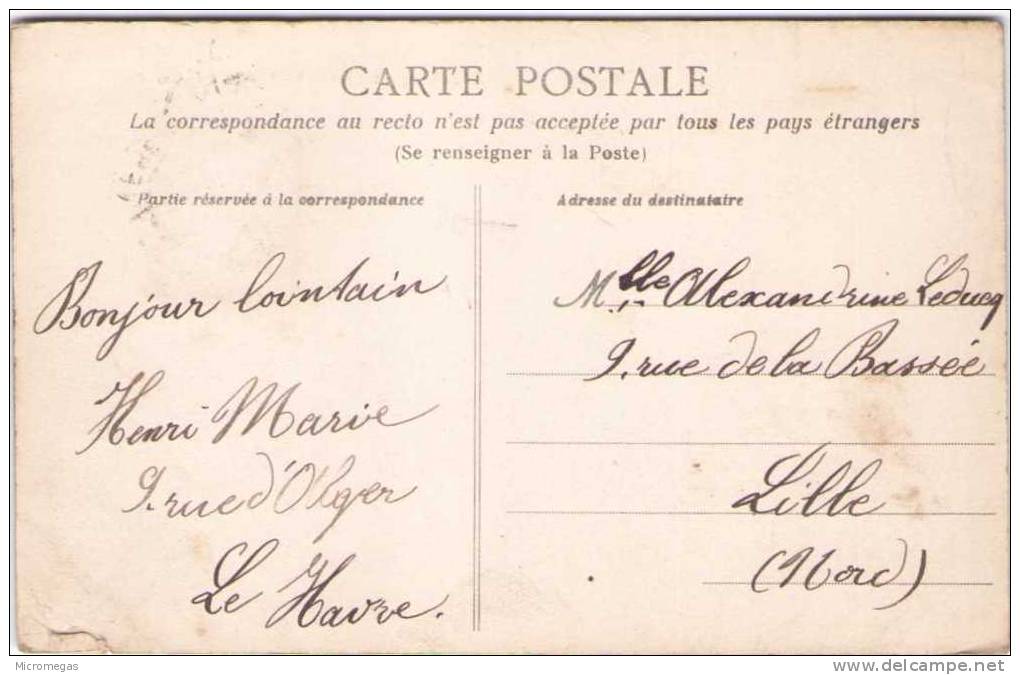 CARTE POSTALE
La correspondance au recto n'est pas acceptée par tous les pays étrangers
(Se renseigner à la Poste)
Partie réservée à la correspondance
Bonjour lointain
Henri Marie
9. rue d'Alger
Le Havre.
Adresse du destinataire
Mlle Alexandrine Leducq
9. rue de la Bassée
Lille
(Nord)
Micromegas
www.delcampe.net